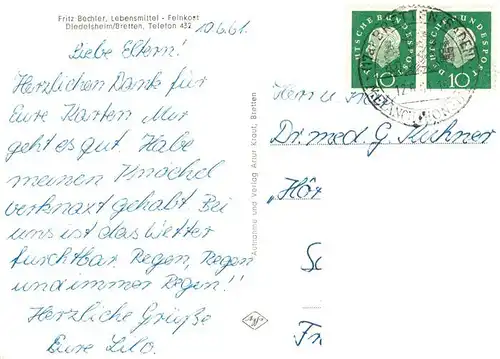 Fritz Bechler, Lebensmittel - Feinkost
Diedelsheim/Bretten, Telefon 432
10.6.61.
Liebe Eltern!
Herzlichen Dank für
Eure Karten Mir
geht es gut. Habe
meinen Knöchel
verknaxt gehabt Bei
uns ist das Wetter
furchtbar Regen, Regen
und immer Regen!!
Herzliche Grüße
Eure Lilo.
Aufnahme und Verlag Artur Kraut, Bretten
DEUTSCHE BUNDESPOST
10
DEUTSCHE BUNDESPOST
10
Herrn u.
Dr. med. G. Kuhner
„Hör